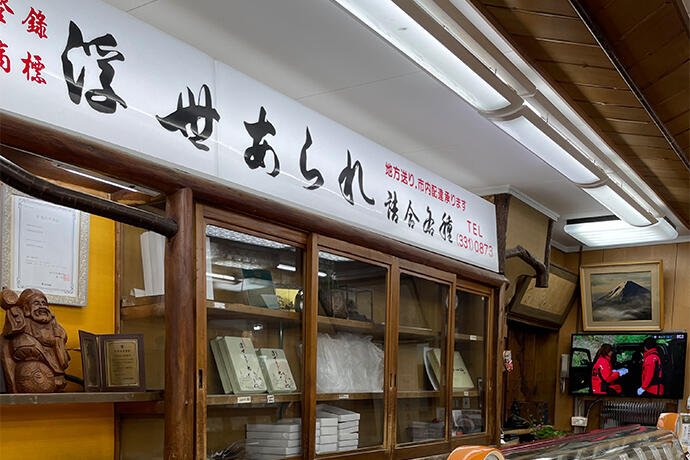 登録
商標
浮世あられ
地方送り、市内配達承ります
詰合各種
TEL
(331)0873